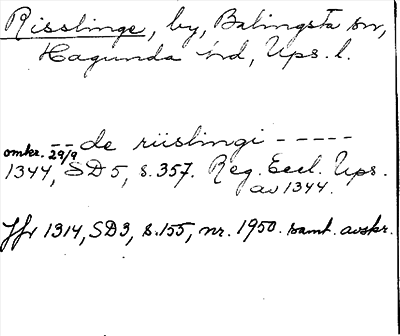 Risslinge, by, Balingsta sn,
Hagunda hd, Ups. l.
-- de riislingi -----
omkr. 29/9
1344, SD 5, s. 357. Reg. Eccl. Ups.
av 1344.
Jfr 1314, SD3, s. 155, nr. 1950. samt. avskr.